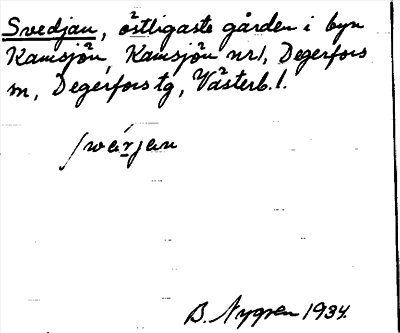 Svedjan, östligaste gården i byn
Kamsjön, Kamsjön nr 1, Degerfors
sn, Degerfors tg, Västerb. l.
swárjan
B. Nygren 1934.